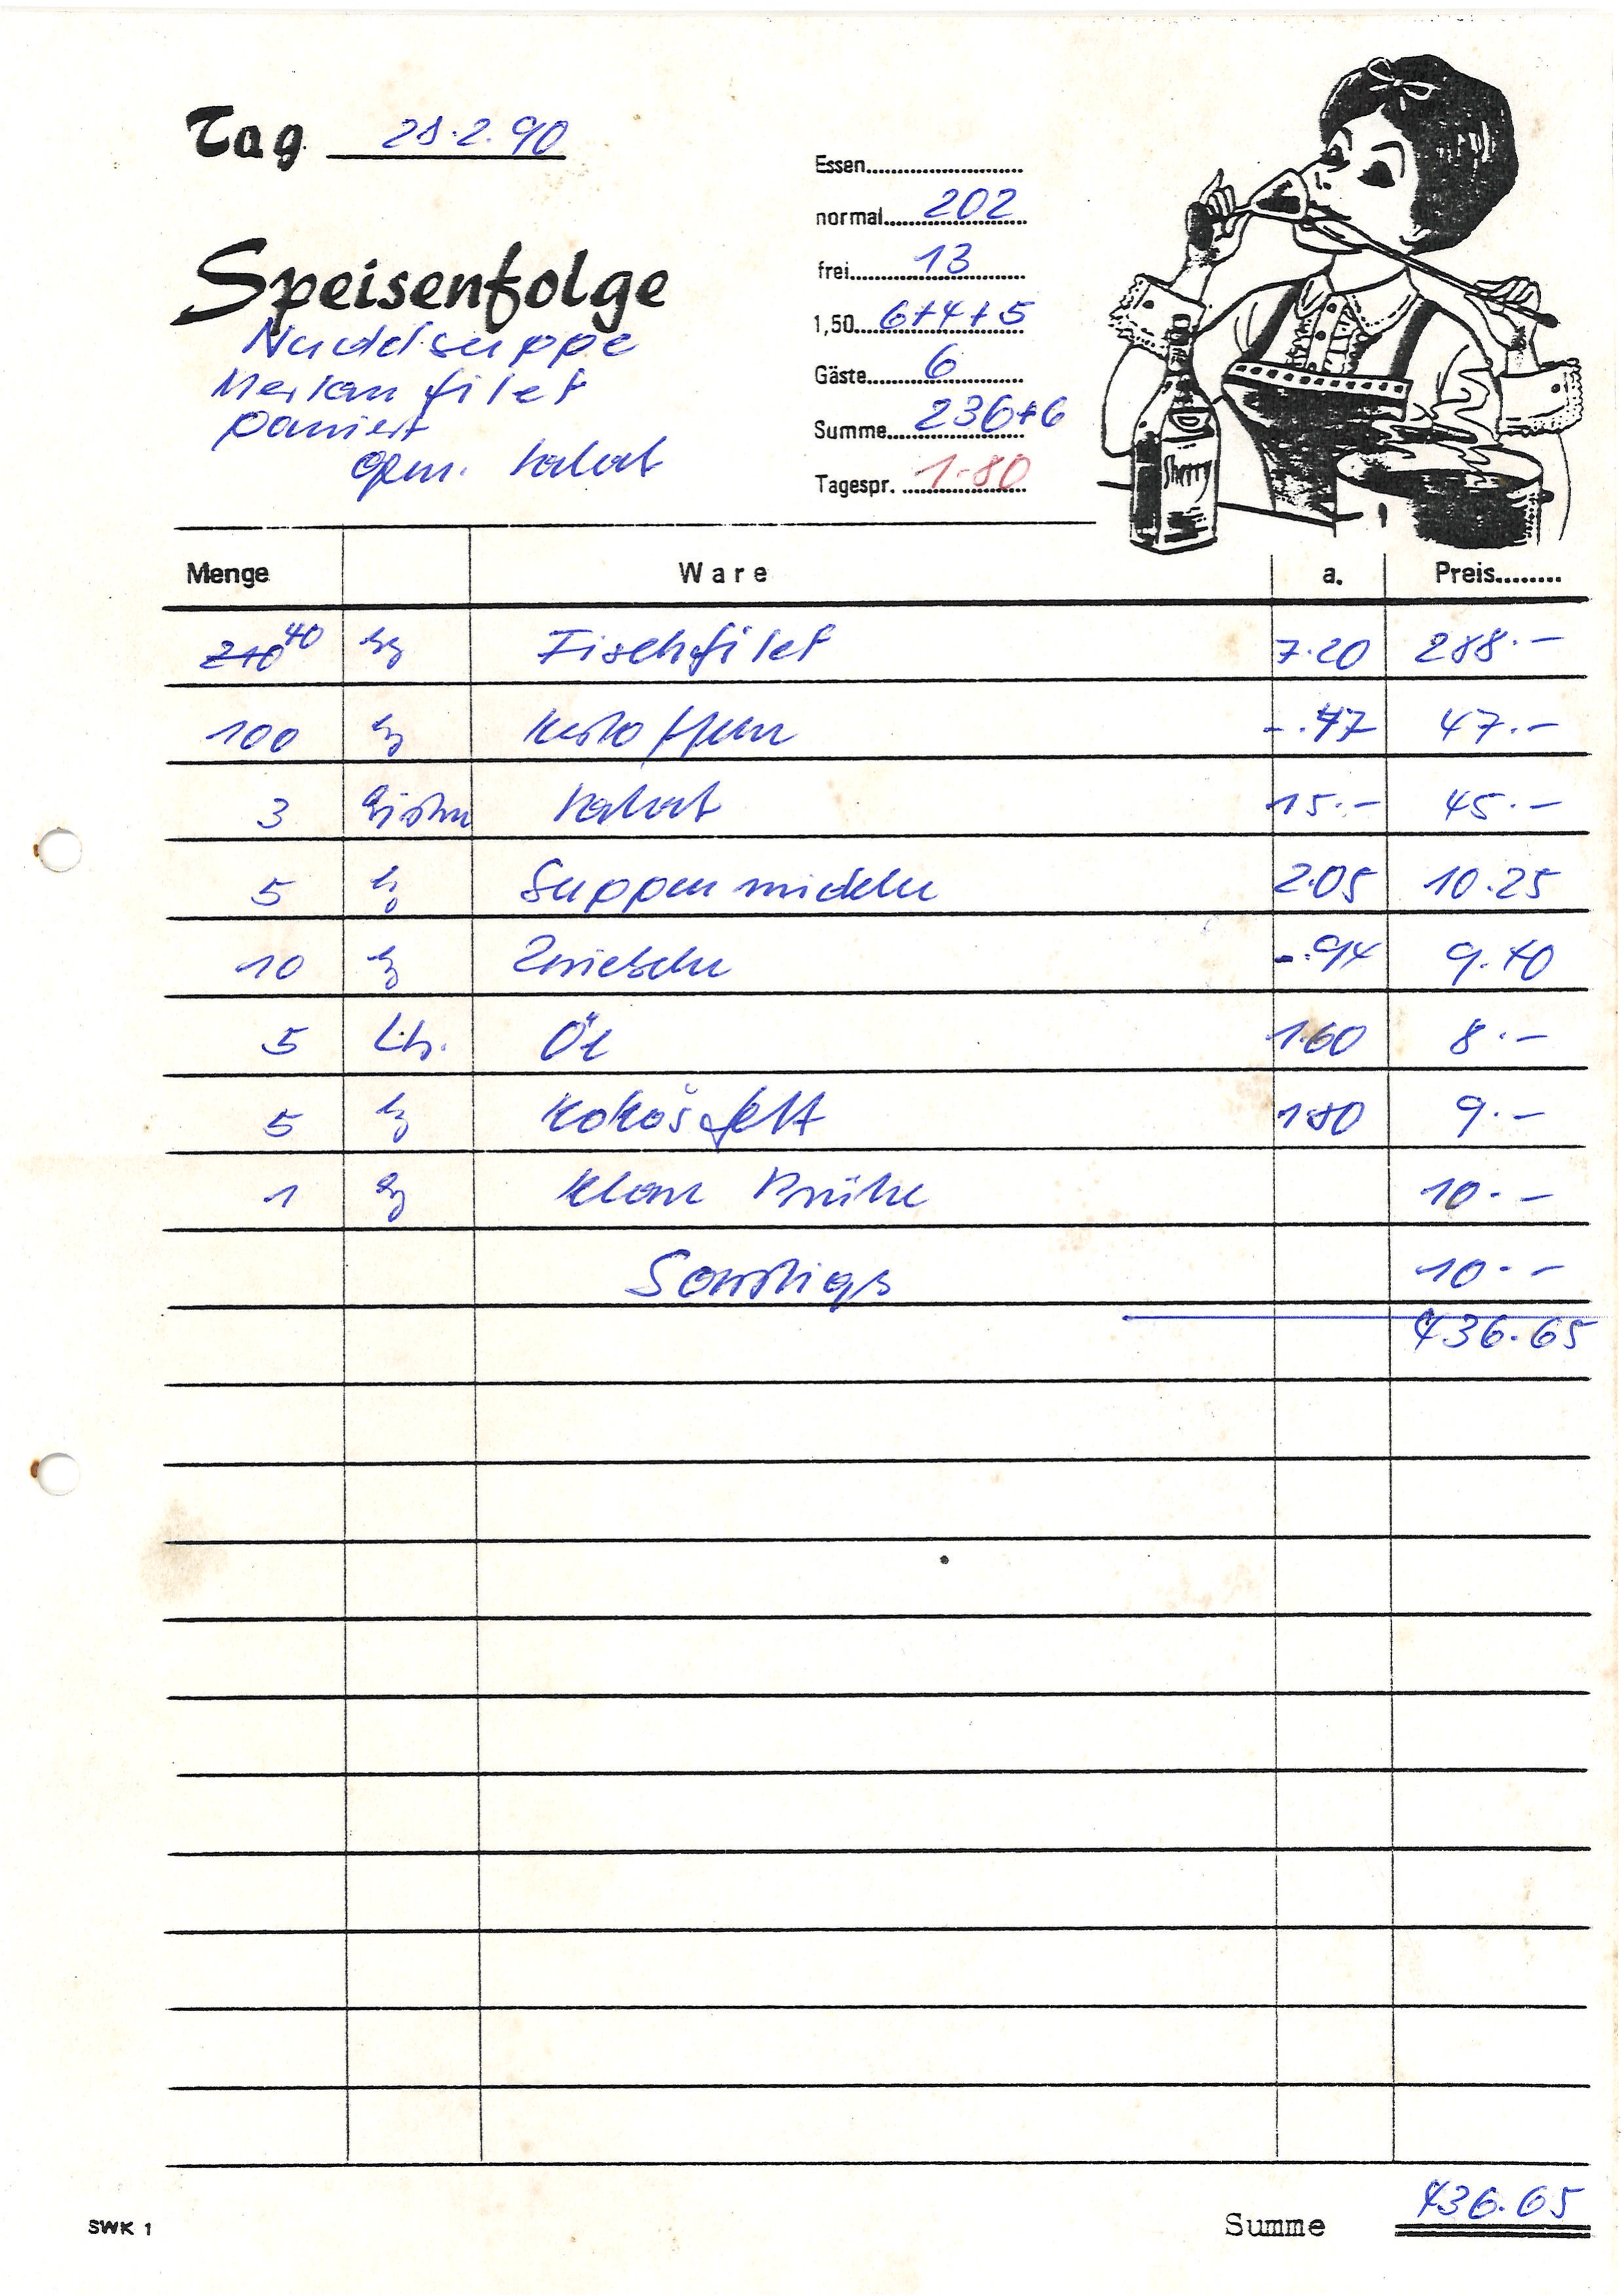 Tag 28.2.90
Essen
normal 202
frei 13
1,50 6+4+5
Gäste 6
Summe 236+6
Tagespr. 1.80
Speisenfolge
Nudelsuppe
Merlan filet
paniert
gem. Salat
Menge Ware a. Preis
210 40 kg Fischfilet 7.20 288.-
100 kg Kartoffeln -.47 47.-
3 Salat 15.- 45.-
5 kg Suppennudeln 2.05 10.25
10 kg Zwiebeln -.94 9.40
5 Ltr. Öl 1.60 8.-
5 kg Kokosfett 1.80 9.-
1 kg Klare Brühe 10.-
Sonstiges 10.-
436.65
SWK 1
Summe 436.65
Sherry